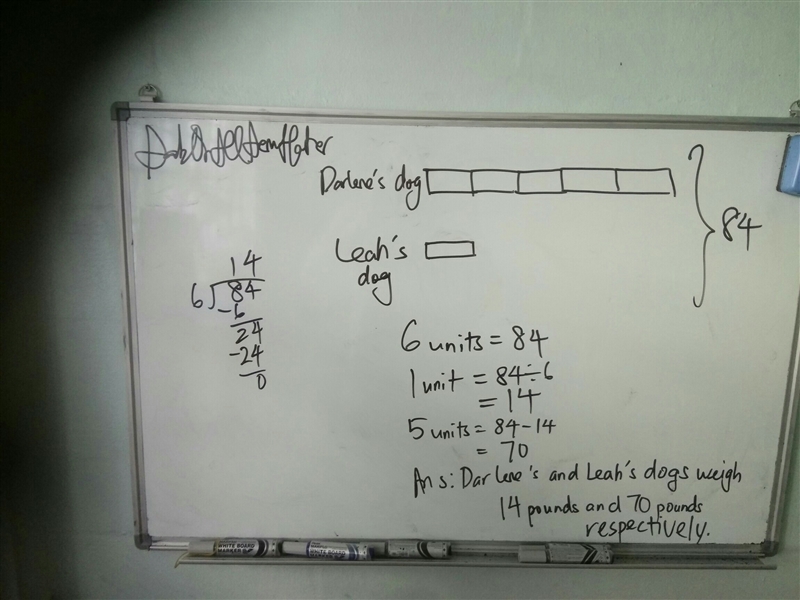 Darlene's dog
84
Leah's
dog
14
6 84
-6
24
-24
0
6 units = 84
1 unit = 84÷6
= 14
5 units = 84-14
= 70
Ans: Darlene's and Leah's dogs weigh
14 pounds and 70 pounds
respectively.
WHITE BOARD
MARKER
WHITE BOARD
MARKER